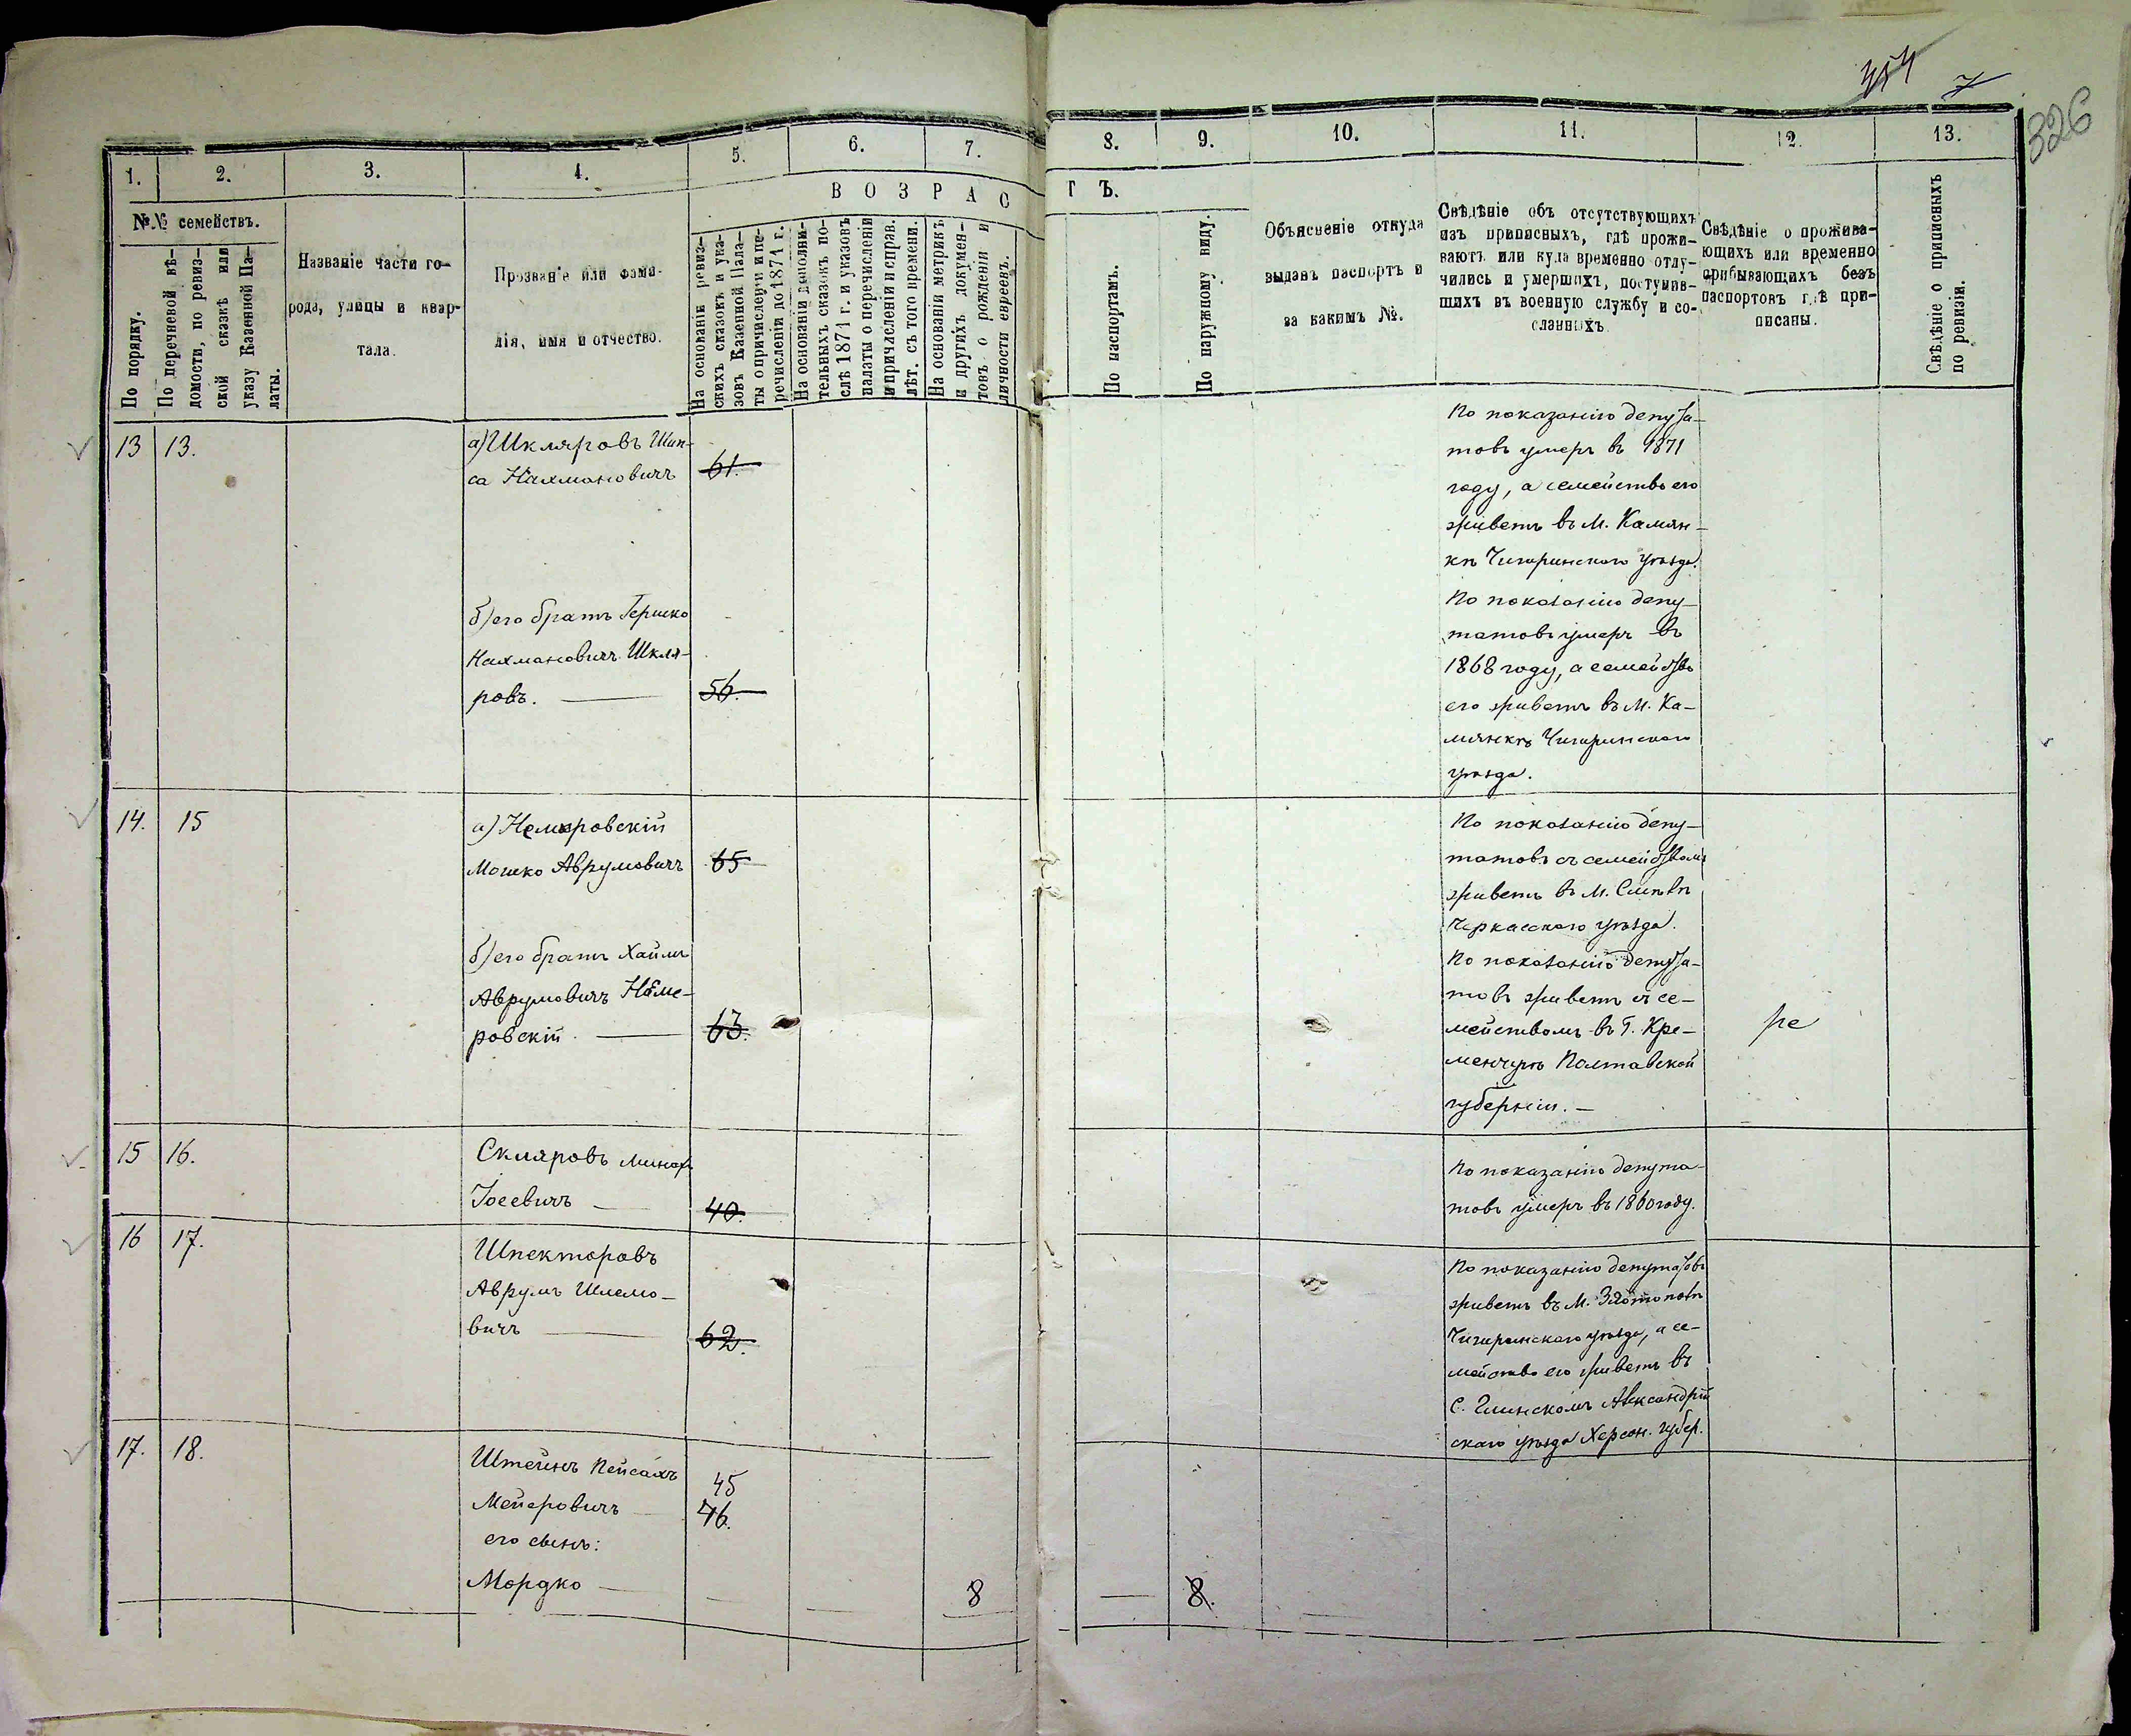 454 7
326
1. 2. 3. 4. 5. 6. 7. 8. 9. 10. 11. 12. 13.
В О З Р А С Т Ъ.
№№ семействъ.
По порядку.
По перечневой вѣ-
домости, по ревиз-
ской сказкѣ или
указу Казенной Па-
латы.
Названіе части го-
рода, улицы и квар-
тала.
Прозваніе или фами-
лія, имя и отчество.
На основаніи ревиз-
скихъ сказокъ и ука-
зовъ Казенной Пала-
ты о причисленіи и пе-
речисленіи до 1871 г.
На основаніи дополни-
тельныхъ сказокъ по-
слѣ 1871 г. и указовъ
палаты о перечисленіи
и причленіи и справ.
лѣт. съ того времени.
На основаніи метрикъ
и другихъ докумен-
товъ о рожденіи и
личности евреевъ.
По паспортамъ.
По наружному виду.
Объясненіе откуда
выданъ паспортъ и
за какимъ №.
Свѣдѣніе объ отсутствующихъ
изъ приписныхъ, гдѣ прожи-
ваютъ или куда временно отлу-
чились и умершихъ, поступив-
шихъ въ военную службу и со-
сланныхъ.
Свѣдѣніе о прожива-
ющихъ или временно
прибывающихъ безъ
паспортовъ гдѣ при-
писаны.
Свѣдѣніе о приписныхъ
по ревизіи.
13 13.
а) Шкляровъ Шип-
са Нахмановичъ 61.
По показанію депута-
товъ умеръ въ 1871
году, а семейство его
живетъ въ М. Камян-
кѣ Чигиринскаго уѣзда.
б) его братъ Гершко
Нахмановичъ Шкля-
ровъ. 56.
По показанію депу-
татовъ умеръ въ
1868 году, а семейство
его живетъ въ М. Ка-
мянкѣ Чигиринскаго
уѣзда.
14. 15
а) Немировскій
Мошко Аврумовичъ 65
По показанію депу-
татовъ съ семействомъ
живетъ въ М. Смѣлѣ
Черкасскаго уѣзда.
б) его братъ Хаимъ
Аврумовичъ Неме-
ровскій 63.
По показанію депута-
товъ живетъ съ се-
мействомъ въ Г. Кре-
менчугѣ Полтавской
губерніи.
15 16.
Скляровъ
Іосевичъ 40.
По показанію депута-
товъ умеръ въ 1860 году.
16 17.
Шпекторовъ
Аврумъ Шлемо-
вичъ 62.
По показанію депутатовъ
живетъ въ М. Златополѣ
Чигиринскаго уѣзда, а се-
мейство его живетъ въ
С. Глинскомъ Александрій
скаго уѣзда Херсон. губер.
17. 18.
Штейнъ Пейсахъ 45
Мейеровичъ 46.
его сынъ:
Мордко 8 8.